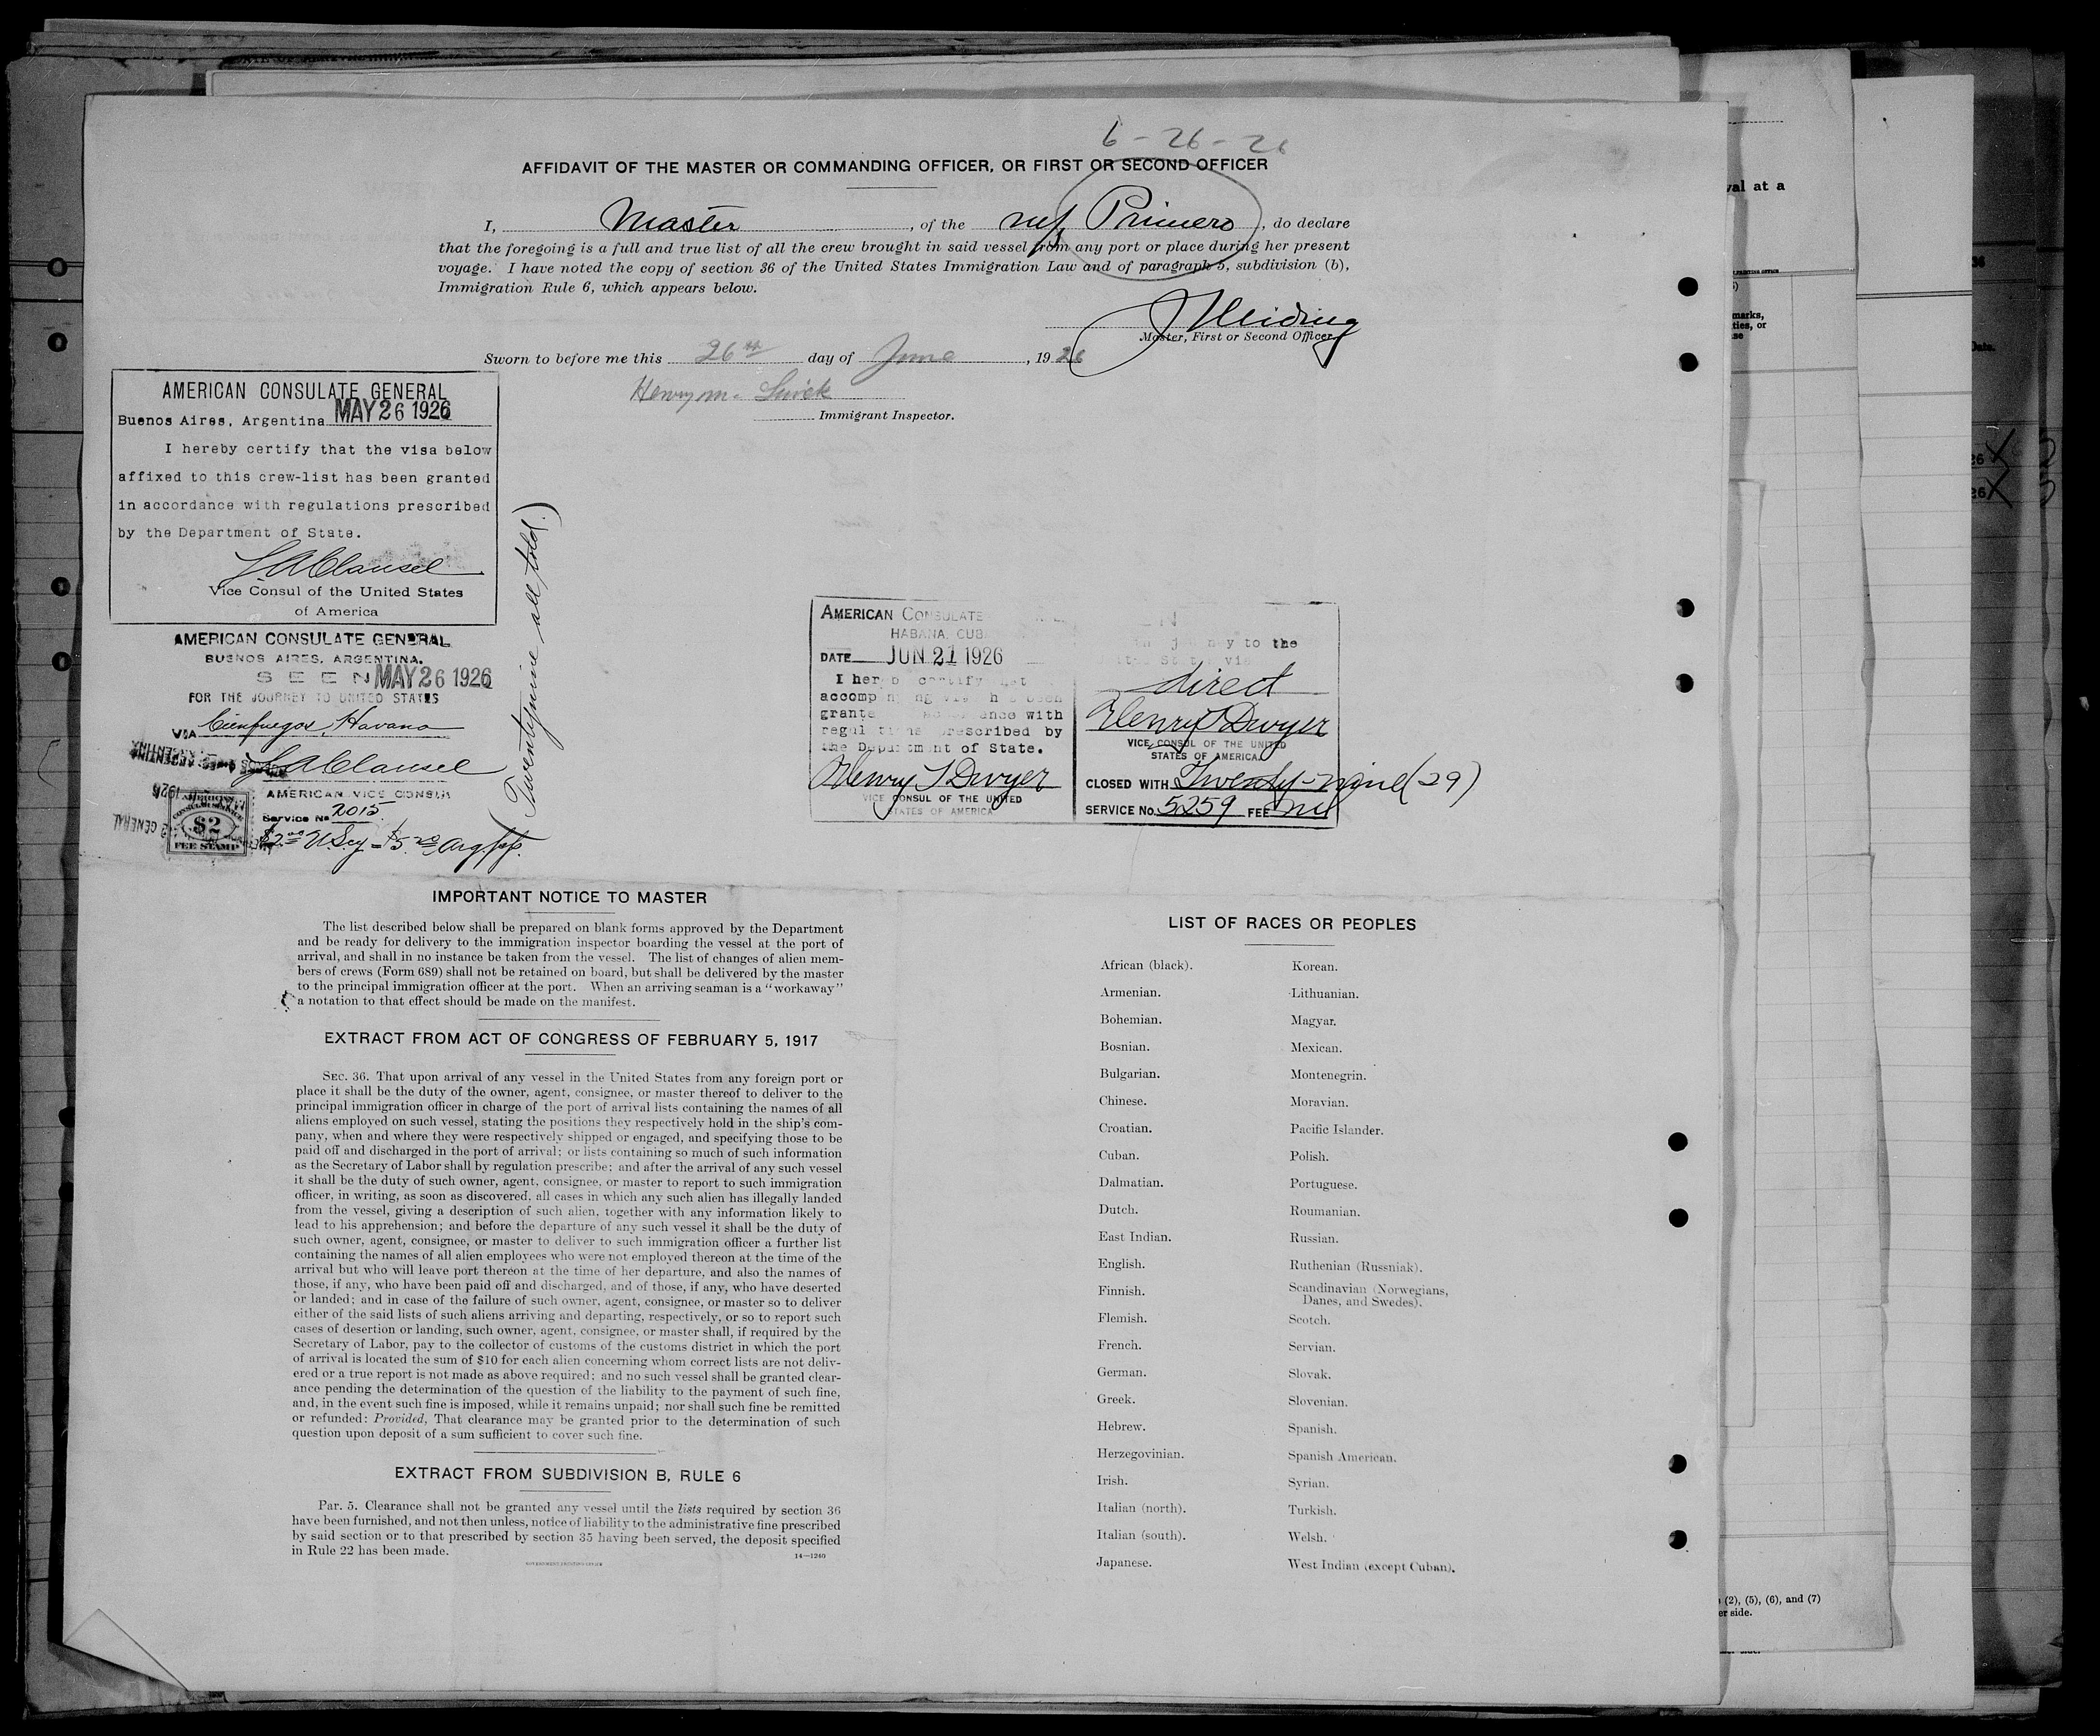 6-26-26
AFFIDAVIT OF THE MASTER OR COMMANDING OFFICER, OR FIRST OR SECOND OFFICER
I, Master, of the m/s Primero, do declare
that the foregoing is a full and true list of all the crew brought in said vessel from any port or place during her present
voyage. I have noted the copy of section 36 of the United States Immigration Law and of paragraph 5, subdivision (b),
Immigration Rule 6, which appears below.
Master, First or Second Officer.
Sworn to before me this 26th day of June, 1926
Henry M.
Immigrant Inspector.
AMERICAN CONSULATE GENERAL
Buenos Aires, Argentina MAY 26 1926
I hereby certify that the visa below
affixed to this crew-list has been granted
in accordance with regulations prescribed
by the Department of State.
Clausel
Vice Consul of the United States
of America
AMERICAN CONSULATE GENERAL
BUENOS AIRES, ARGENTINA.
SEEN MAY 26 1926
FOR THE JOURNEY TO UNITED STATES
VIA Cienfuegos, Havana
Clausel
AMERICAN VICE CONSUL
Service No 2015
$2.00 U.S.cy = $5.20 Arg. pp.
AMERICAN CONSULAR SERVICE
$2
FEE STAMP
(Twentynine all told.)
AMERICAN CONSULATE
HABANA, CUB
DATE JUN 21 1926
I hereb certify
accomp
grante ance with
prescribed by
the Department of State.
Henry T Dwyer
VICE CONSUL OF THE UNITED
STATES OF AMERICA
to the
direct
Henry T Dwyer
VICE CONSUL OF THE UNITED
STATES OF AMERICA.
CLOSED WITH Twenty-nine (29)
SERVICE No. 5259 FEE nil
IMPORTANT NOTICE TO MASTER
The list described below shall be prepared on blank forms approved by the Department
and be ready for delivery to the immigration inspector boarding the vessel at the port of
arrival, and shall in no instance be taken from the vessel. The list of changes of alien mem-
bers of crews (Form 689) shall not be retained on board, but shall be delivered by the master
to the principal immigration officer at the port. When an arriving seaman is a "workaway"
a notation to that effect should be made on the manifest.
EXTRACT FROM ACT OF CONGRESS OF FEBRUARY 5, 1917
SEC. 36. That upon arrival of any vessel in the United States from any foreign port or
place it shall be the duty of the owner, agent, consignee, or master thereof to deliver to the
principal immigration officer in charge of the port of arrival lists containing the names of all
aliens employed on such vessel, stating the positions they respectively hold in the ship's com-
pany, when and where they were respectively shipped or engaged, and specifying those to be
paid off and discharged in the port of arrival; or lists containing so much of such information
as the Secretary of Labor shall by regulation prescribe; and after the arrival of any such vessel
it shall be the duty of such owner, agent, consignee, or master to report to such immigration
officer, in writing, as soon as discovered, all cases in which any such alien has illegally landed
from the vessel, giving a description of such alien, together with any information likely to
lead to his apprehension; and before the departure of any such vessel it shall be the duty of
such owner, agent, consignee, or master to deliver to such immigration officer a further list
containing the names of all alien employees who were not employed thereon at the time of the
arrival but who will leave port thereon at the time of her departure, and also the names of
those, if any, who have been paid off and discharged, and of those, if any, who have deserted
or landed; and in case of the failure of such owner, agent, consignee, or master so to deliver
either of the said lists of such aliens arriving and departing, respectively, or so to report such
cases of desertion or landing, such owner, agent, consignee, or master shall, if required by the
Secretary of Labor, pay to the collector of customs of the customs district in which the port
of arrival is located the sum of $10 for each alien concerning whom correct lists are not deliv-
ered or a true report is not made as above required; and no such vessel shall be granted clear-
ance pending the determination of the question of the liability to the payment of such fine,
and, in the event such fine is imposed, while it remains unpaid; nor shall such fine be remitted
or refunded: Provided, That clearance may be granted prior to the determination of such
question upon deposit of a sum sufficient to cover such fine.
EXTRACT FROM SUBDIVISION B, RULE 6
Par. 5. Clearance shall not be granted any vessel until the lists required by section 36
have been furnished, and not then unless, notice of liability to the administrative fine prescribed
by said section or to that prescribed by section 35 having been served, the deposit specified
in Rule 22 has been made.
14—1240
GOVERNMENT PRINTING OFFICE
LIST OF RACES OR PEOPLES
African (black). Korean.
Armenian. Lithuanian.
Bohemian. Magyar.
Bosnian. Mexican.
Bulgarian. Montenegrin.
Chinese. Moravian.
Croatian. Pacific Islander.
Cuban. Polish.
Dalmatian. Portuguese.
Dutch. Roumanian.
East Indian. Russian.
English. Ruthenian (Russniak).
Finnish. Scandinavian (Norwegians,
Danes, and Swedes).
Flemish. Scotch.
French. Servian.
German. Slovak.
Greek. Slovenian.
Hebrew. Spanish.
Herzegovinian. Spanish American.
Irish. Syrian.
Italian (north). Turkish.
Italian (south). Welsh.
Japanese. West Indian (except Cuban).
val at a
marks,
ties, or
(2), (5), (6), and (7)
er side.